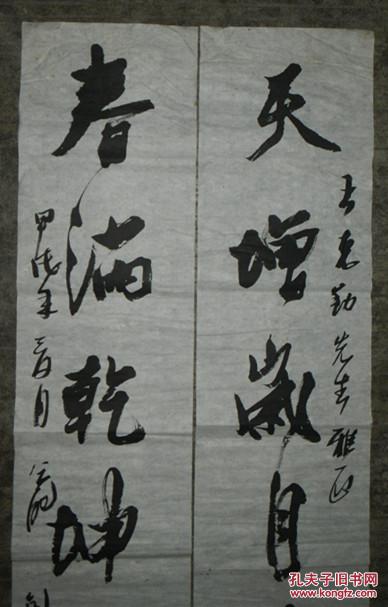 克勤先生雅正
天增歲月
春滿乾坤
甲戌年
孔夫子旧书网
www.kongfz.com